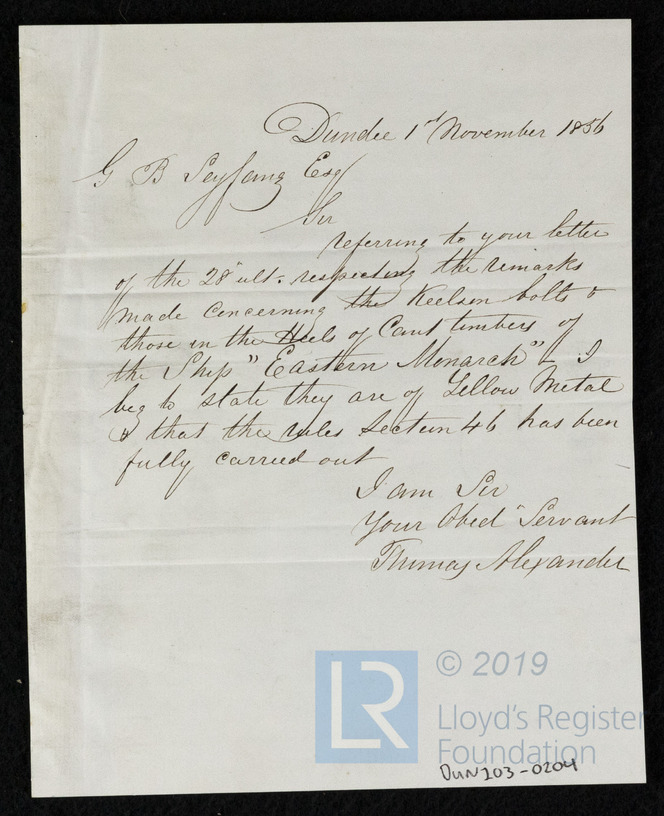 Dundee 1st November 1856
G B Seyfang Esq
Sir
referring to your letter
of the 28" ult. respecting the remarks
made concerning the Keelson bolts &
those in the Heels of Cant timbers of
the Ship "Eastern Monarch" - I
beg to state they are of Yellow Metal
& that the rules Section 46 has been
fully carried out
I am Sir
Your Obed" Servant
Thomas Alexander
LR
© 2019
Lloyd's Register
Foundation
DUN203-0204